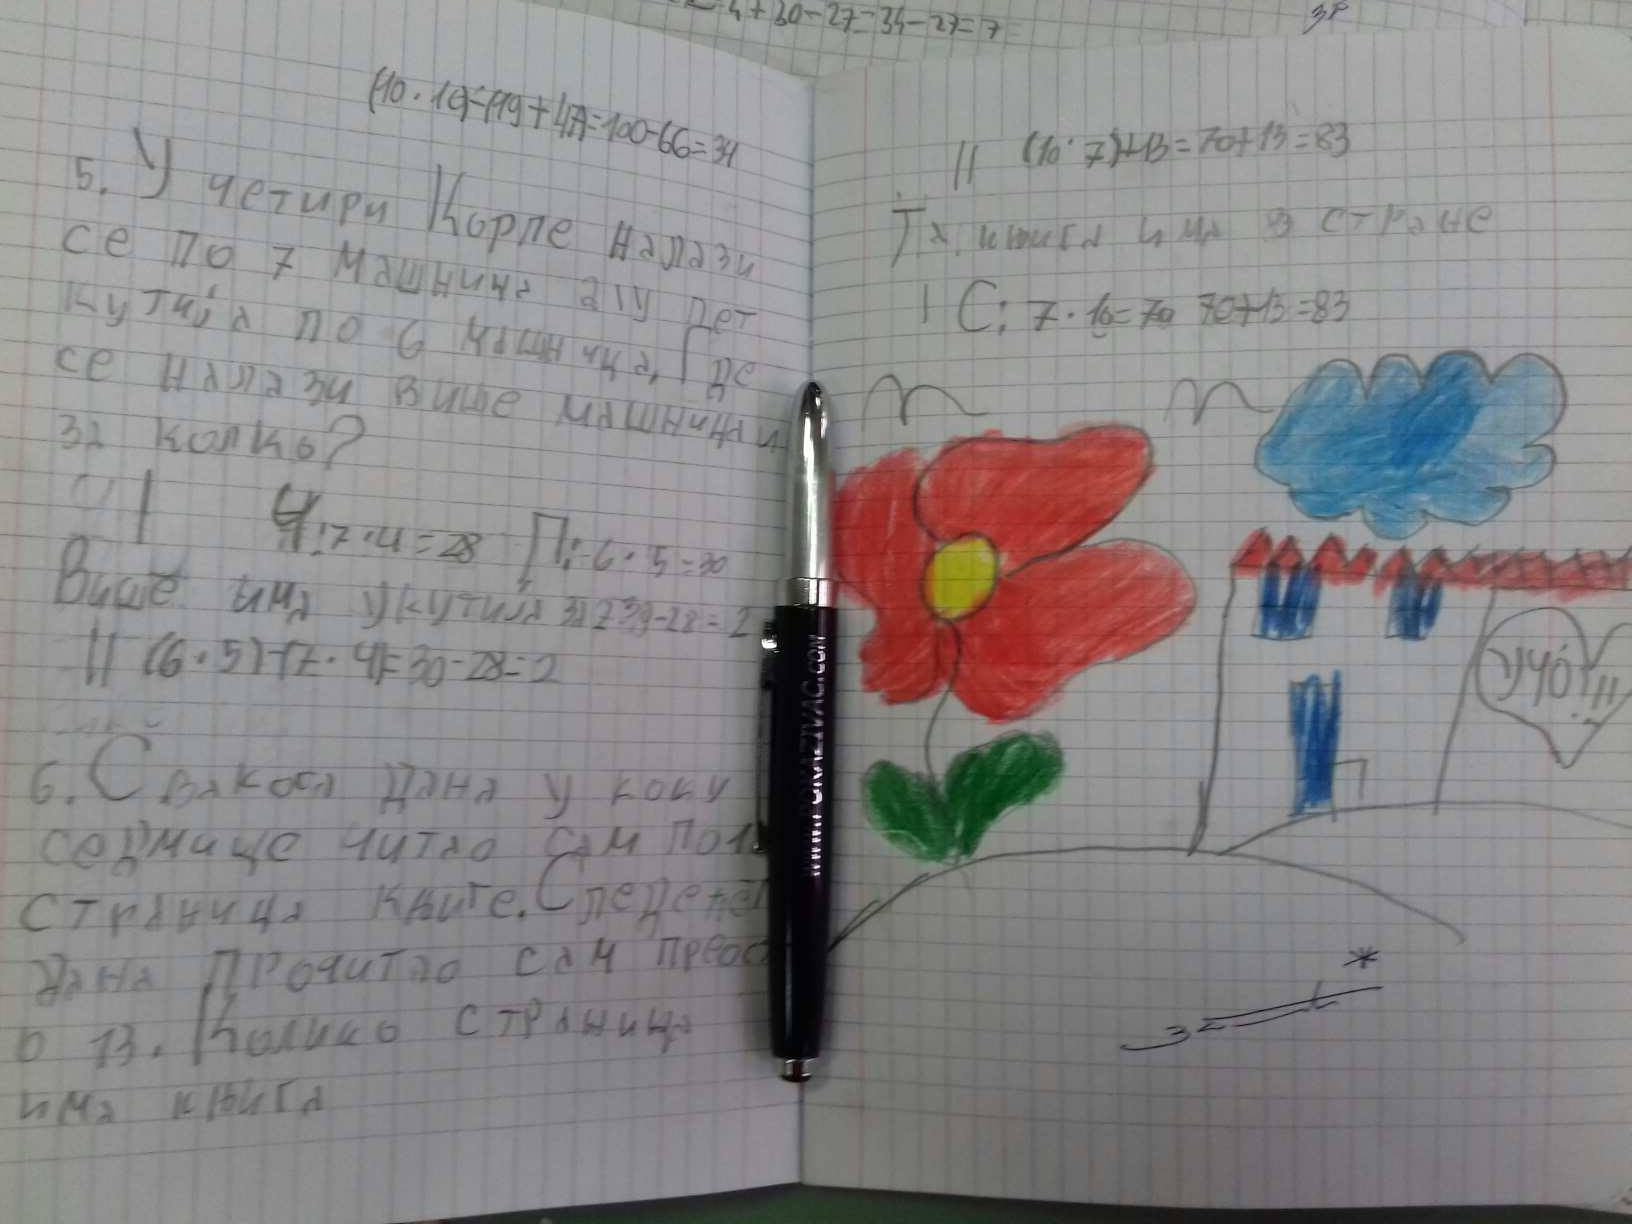 4+30-27=34-27=7
(10·10)-(19+47)=100-66=34
5. У четири Корпе налази
се по 7 машница а у пет
кутија по 6 машница. Где
се налази више машница и
за колко?
I Ч:7·4=28 П:6·5=30
Више има у кутија за 2 30-28=2
II (6·5)-(7·4)=30-28=2
6. Свакога дана у
седмице читао сам по 10
страница књиге.
дана Прочитао сам
13. Колико страница
има књига
II (10·7)+13=70+13=83
Та књига има стране
I С: 7·10=70 70+13=83
УЧО!!
WWW.POKAZIVAC.COM